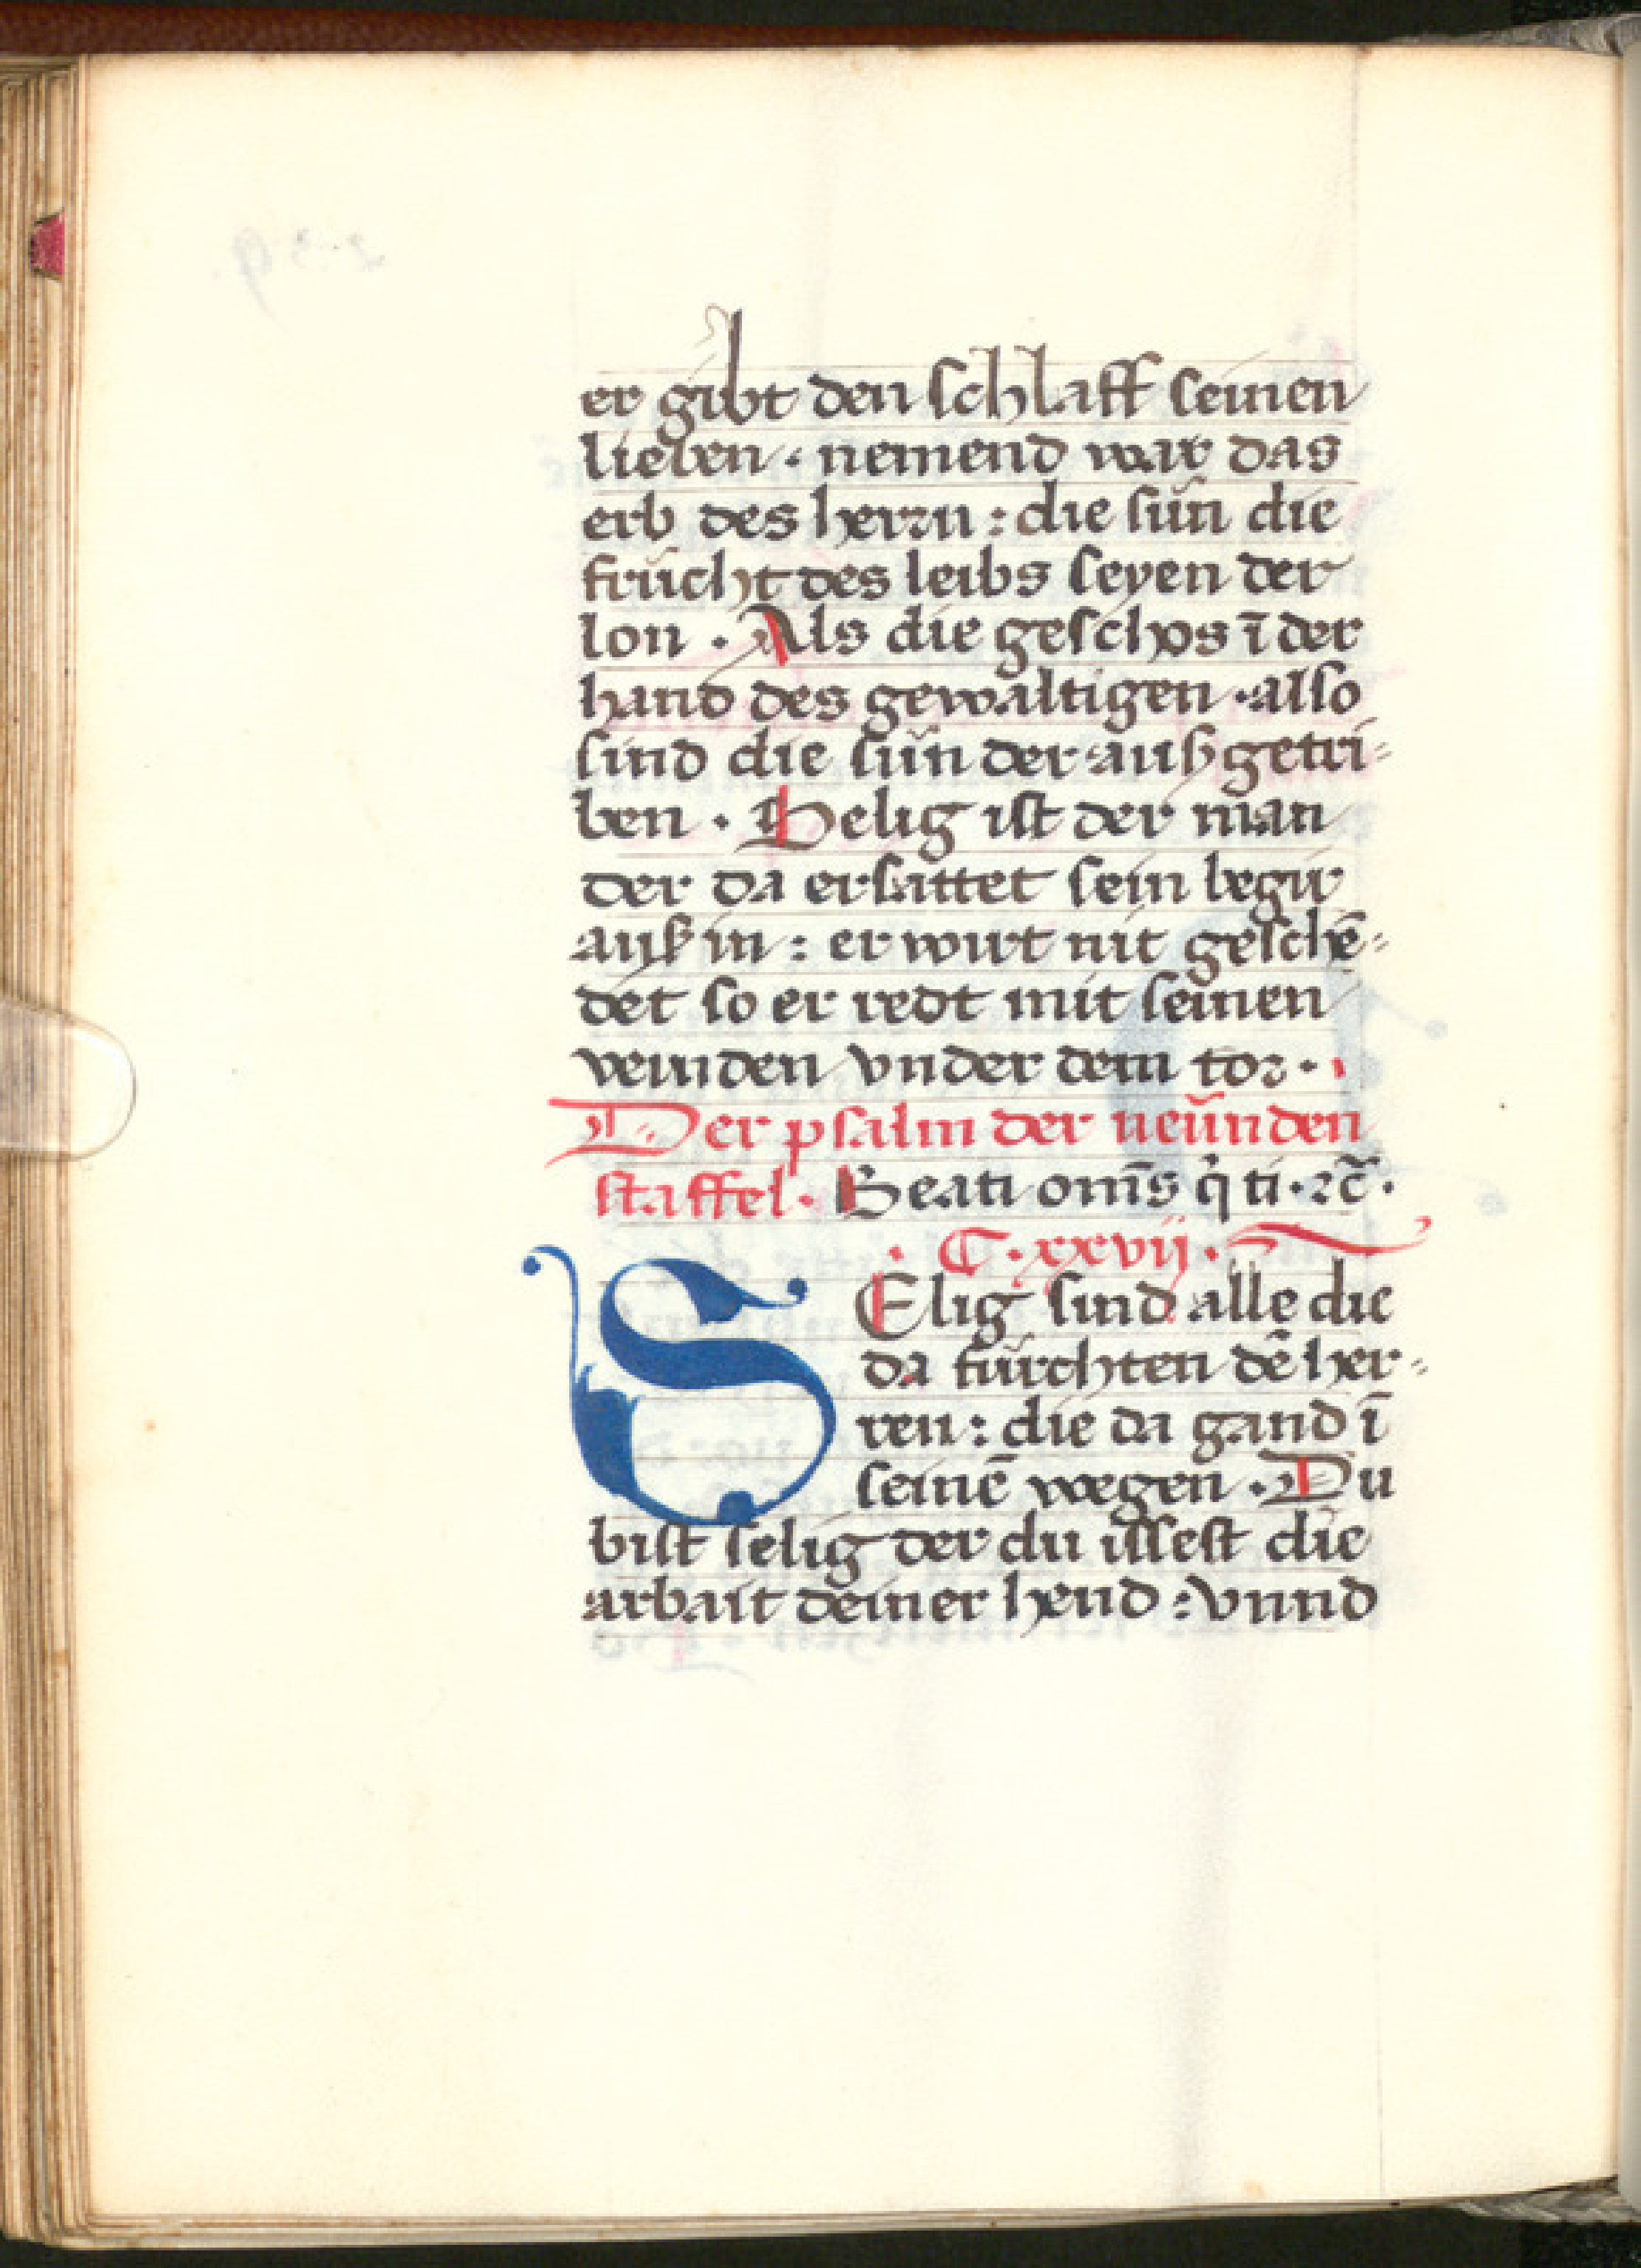 er gibt den schlaff seinen
lieben · nemend war das
erb des herrn : die sün die
frücht des leibs seyen der
lon · Als die geschos ī der
hand des gewaltigen · also
sind die sün der außgetri⸗
ben · Selig ist der man
der da ersattet sein begir
auß in : er wirt nit geschē⸗
det so er redt mit seinen
veinden vnder dem tor ·
Der psalm der neünden
staffel · Beati om̄s q̇ ti · ꝛc̄ ·
· C · xxvij ·
SElig sind alle die
da fürchten dē her⸗
ren : die da gand ī
seinē wegen · Du
bist selig der du issest die
arbait deiner hend : vnnd